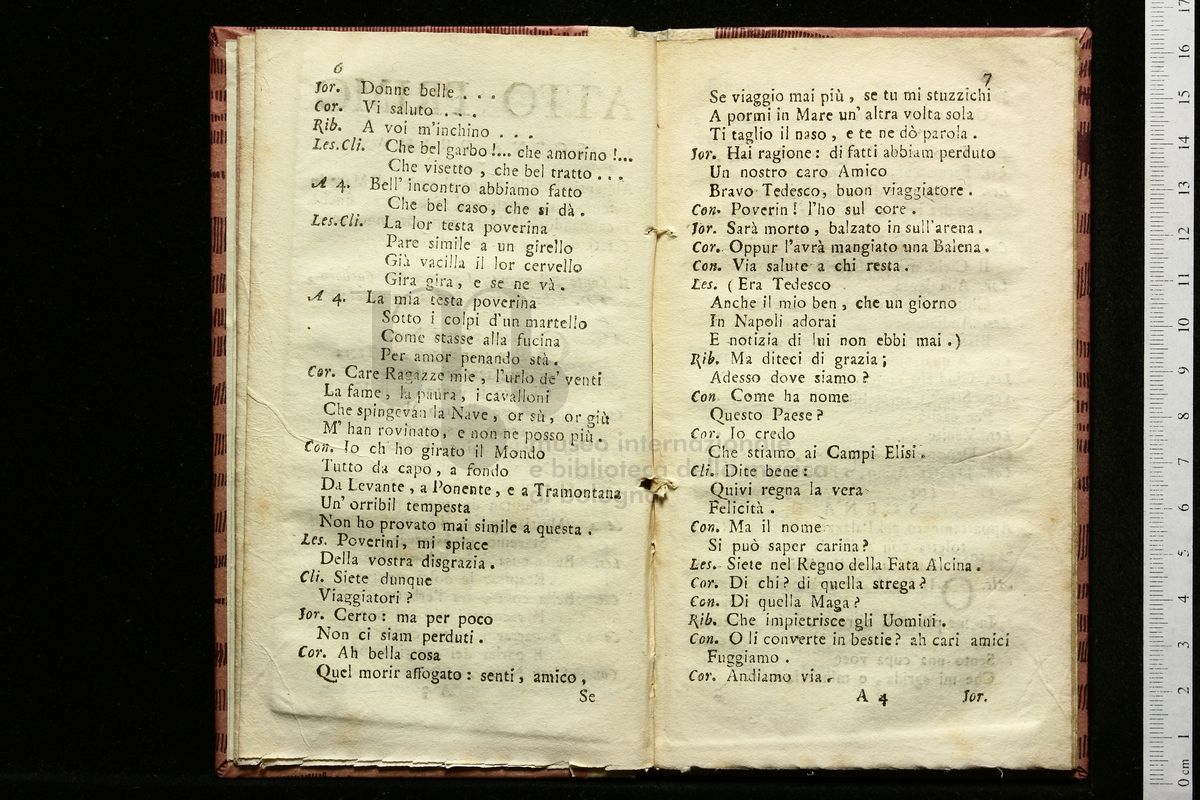 6
Jor. Donne belle . . .
Cor. Vi saluto . . .
Rib. A voi m'inchino . . .
Les.Cli. Che bel garbo !... che amorino !...
Che visetto , che bel tratto . . .
A 4. Bell' incontro abbiamo fatto
Che bel caso, che si dà .
Les.Cli. La lor testa poverina
Pare simile a un girello
Già vacilla il lor cervello
Gira gira, e se ne và .
A 4. La mia testa poverina
Sotto i colpi d'un martello
Come stasse alla fucina
Per amor penando stà .
Cor. Care Ragazze mie , l'urlo de' venti
La fame , la paura , i cavalloni
Che spingevan la Nave , or sù , or giù
M' han rovinato, e non ne posso più .
Con. Io ch ho girato il Mondo
Tutto da capo , a fondo
Da Levante , a Ponente , e a Tramontana
Un' orribil tempesta
Non ho provato mai simile a questa .
Les. Poverini, mi spiace
Della vostra disgrazia .
Cli. Siete dunque
Viaggiatori ?
Jor. Certo : ma per poco
Non ci siam perduti .
Cor. Ah bella cosa
Quel morir affogato : senti , amico ,
Se
7
Se viaggio mai più , se tu mi stuzzichi
A pormi in Mare un' altra volta sola
Ti taglio il naso , e te ne dò parola .
Jor. Hai ragione : di fatti abbiam perduto
Un nostro caro Amico
Bravo Tedesco, buon viaggiatore .
Con. Poverin ! l'ho sul core .
Jor. Sarà morto , balzato in sull'arena .
Cor. Oppur l'avrà mangiato una Balena .
Con. Via salute a chi resta .
Les. ( Era Tedesco
Anche il mio ben , che un giorno
In Napoli adorai
E notizia di lui non ebbi mai . )
Rib. Ma diteci di grazia ;
Adesso dove siamo ?
Con Come ha nome
Questo Paese ?
Cor. Io credo
Che stiamo ai Campi Elisi .
Cli. Dite bene :
Quivi regna la vera
Felicità .
Con. Ma il nome
Si può saper carina ?
Les. Siete nel Regno della Fata Alcina .
Cor. Di chi ? di quella strega ?
Con. Di quella Maga ?
Rib. Che impietrisce gli Uomini .
Con. O li converte in bestie ? ah cari amici
Fuggiamo .
Cor. Andiamo via .
A 4 Jor.
museo internazionale
e biblioteca della musica
di bologna
0 cm 1 2 3 4 5 6 7 8 9 10 11 12 13 14 15 16 17